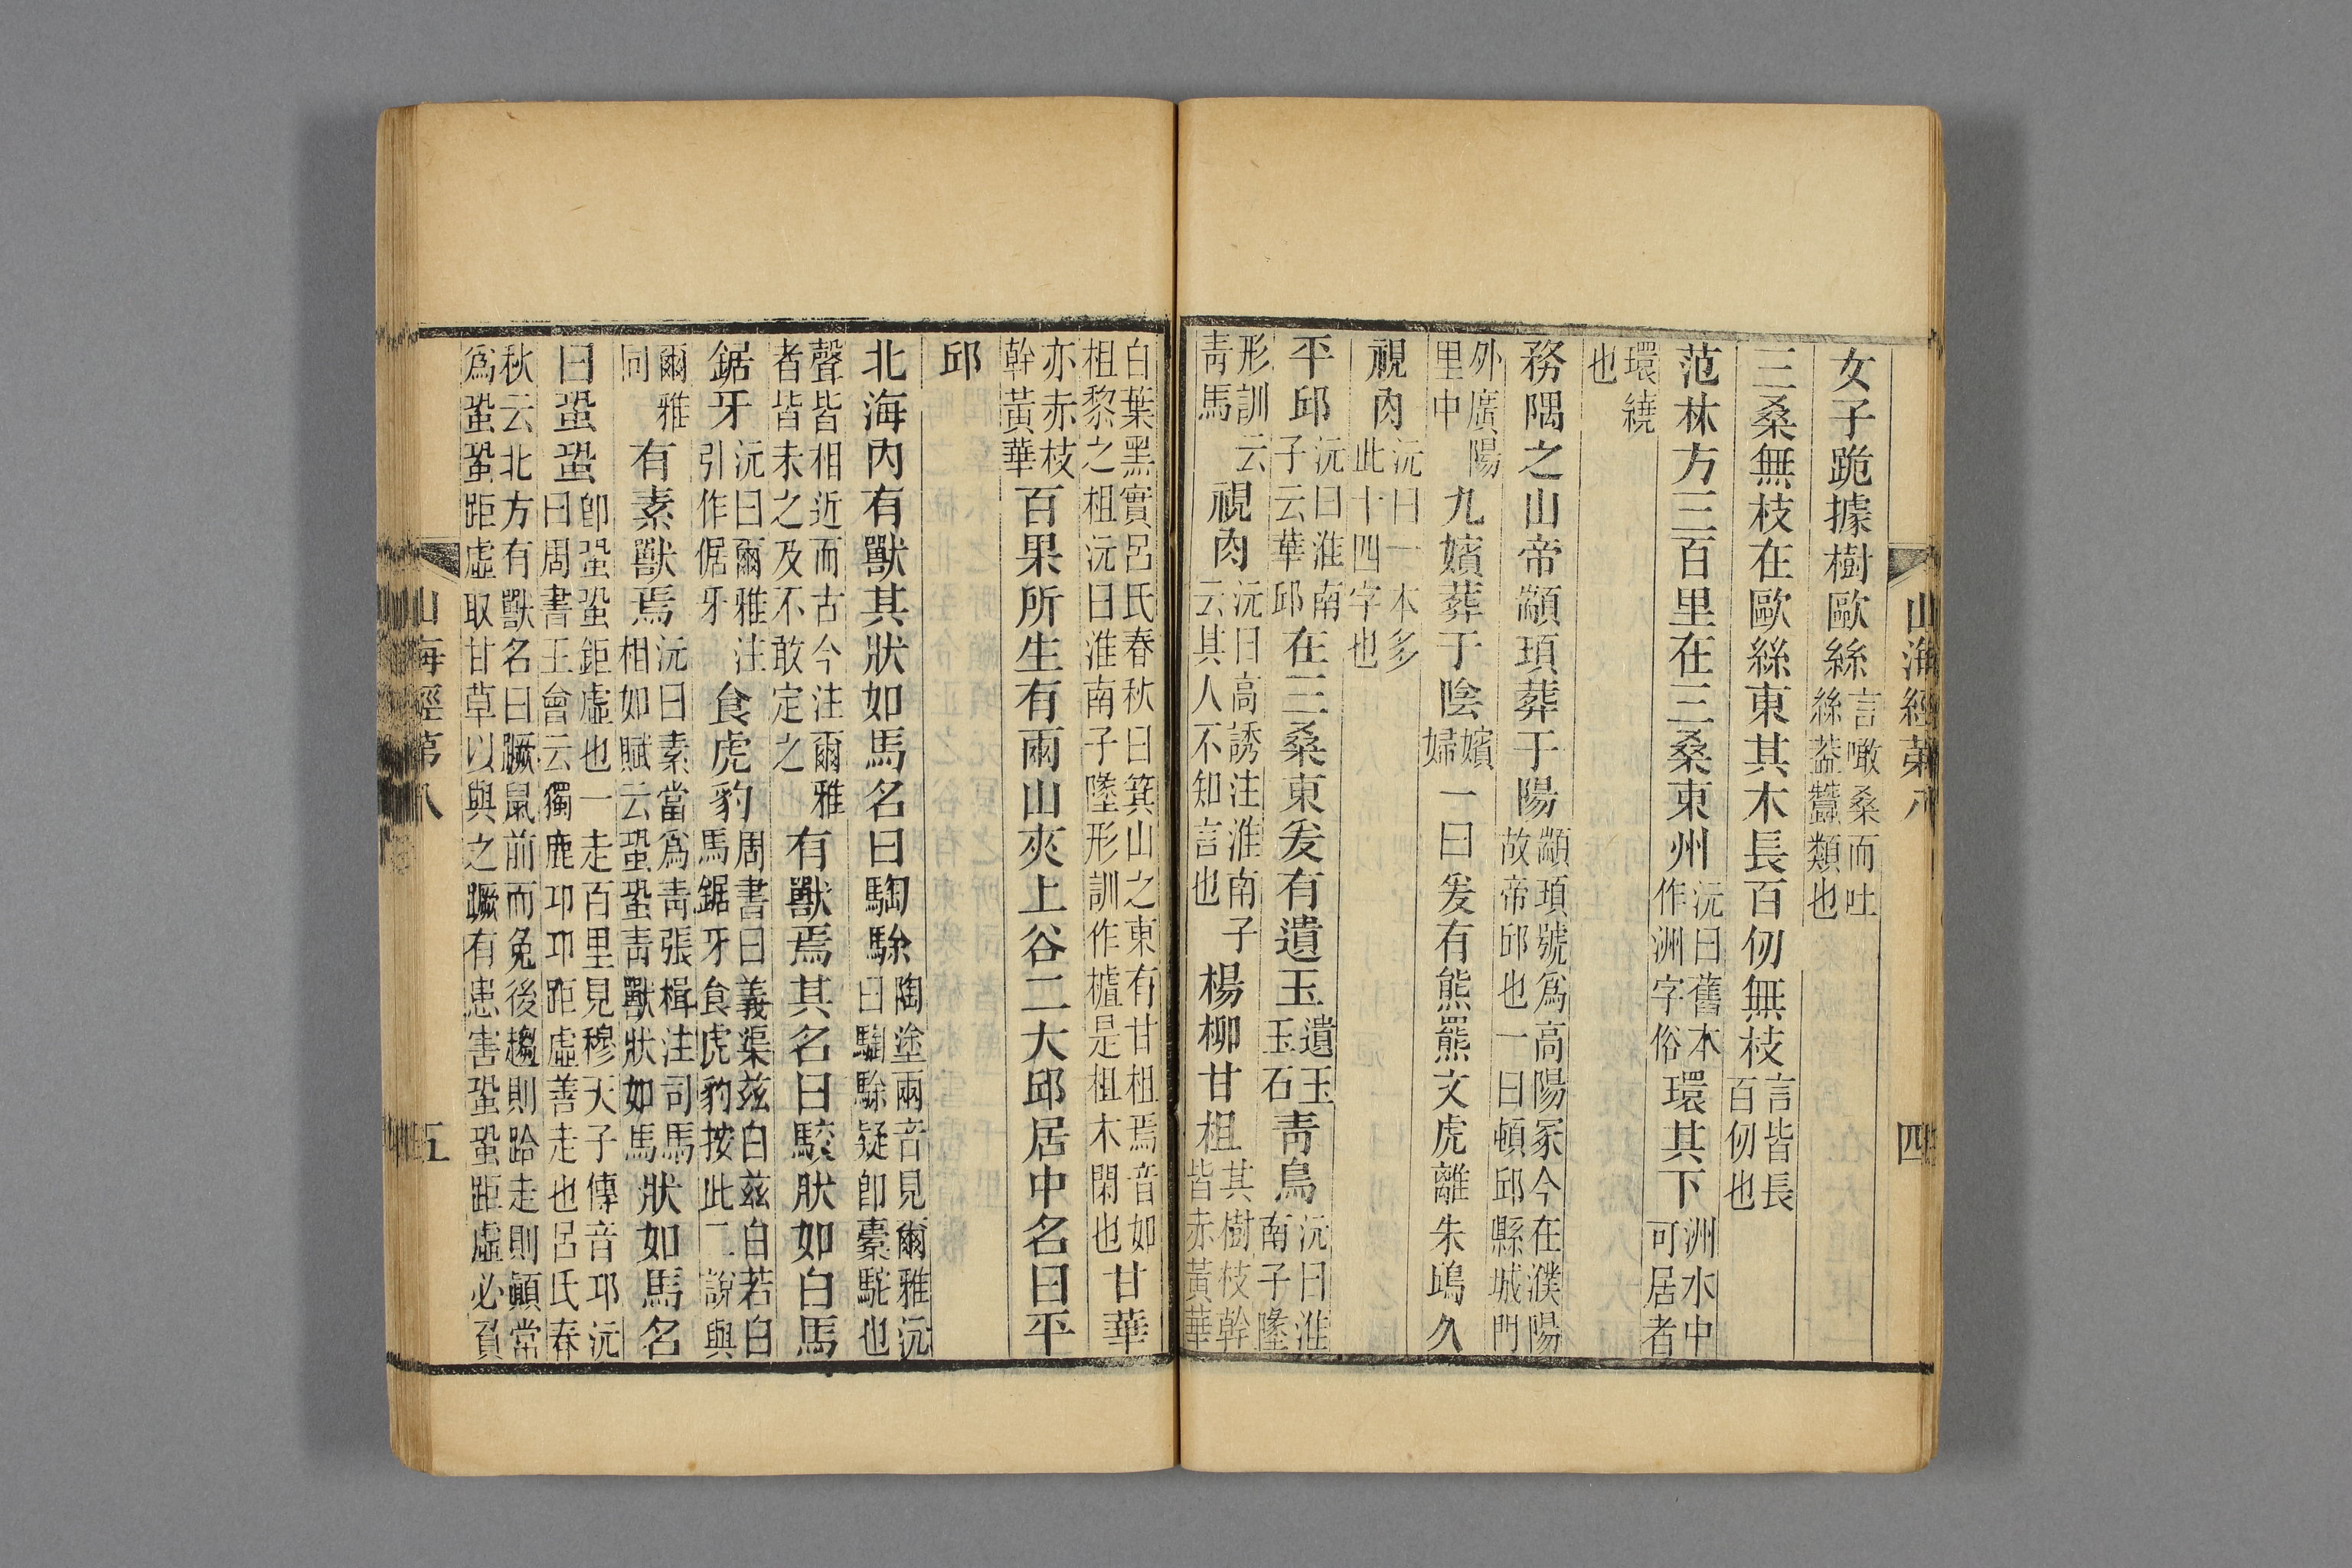 山海經第八 四
女子跪據樹歐絲言噉桑而吐絲葢蠶類也
三桑無枝在歐絲東其木長百仞無枝言皆長百仞也
范林方三百里在三桑東州沅曰舊本作洲字俗環其下洲水中可居者
環繞也
務隅之山帝顓頊葬于陽顓頊號爲高陽冢今在濮陽故帝邱也一曰頓邱縣城門
外廣陽里中九嬪葬于陰嬪婦一曰爰有熊羆文虎離朱鴟久
視肉沅曰一本多此十四字也
平邱沅曰淮南子云華邱在三桑東爰有遺玉遺玉玉石靑鳥沅曰淮南子墬
形訓云靑馬視肉沅曰高誘注淮南子云其人不知言也楊柳甘柤其樹枝幹皆赤黃華
白葉黑實呂氏春秋曰箕山之東有甘柤焉音如柤黎之柤沅曰淮南子墬形訓作樝是柤木閑也甘華
亦赤枝幹黃華百果所生有兩山夾上谷二大邱居中名曰平
邱
北海內有獸其狀如馬名曰騊駼陶塗兩音見爾雅沅曰騊駼疑卽橐駝也
聲皆相近而古今注爾雅者皆未之及不敢定之有獸焉其名曰駮狀如白馬
鋸牙沅曰爾雅注引作倨牙食虎豹周書曰義渠茲白茲白若白馬鋸牙食虎豹按此二說與
爾雅同有素獸焉沅曰素當爲靑張楫注司馬相如賦云蛩蛩靑獸狀如馬狀如馬名
曰蛩蛩卽蛩蛩鉅虛也一走百里見穆天子傳音邛沅曰周書王會云獨鹿邛邛距虛善走也呂氏春
秋云北方有獸名曰蹶鼠前而兔後趨則跲走則顚常爲蛩蛩距虛取甘草以與之蹶有患害蛩蛩距虛必負
山海經第八 五